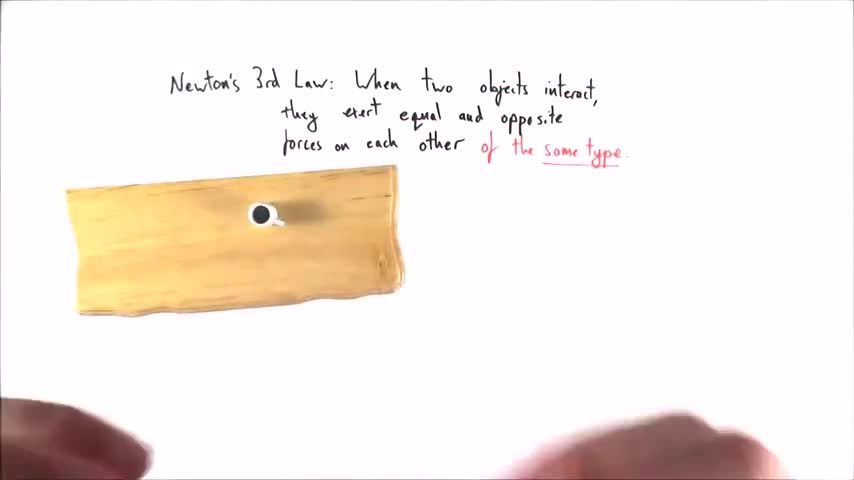 Newton's 3rd Law: When two objects interact,
they exert equal and opposite
forces on each other of the same type.